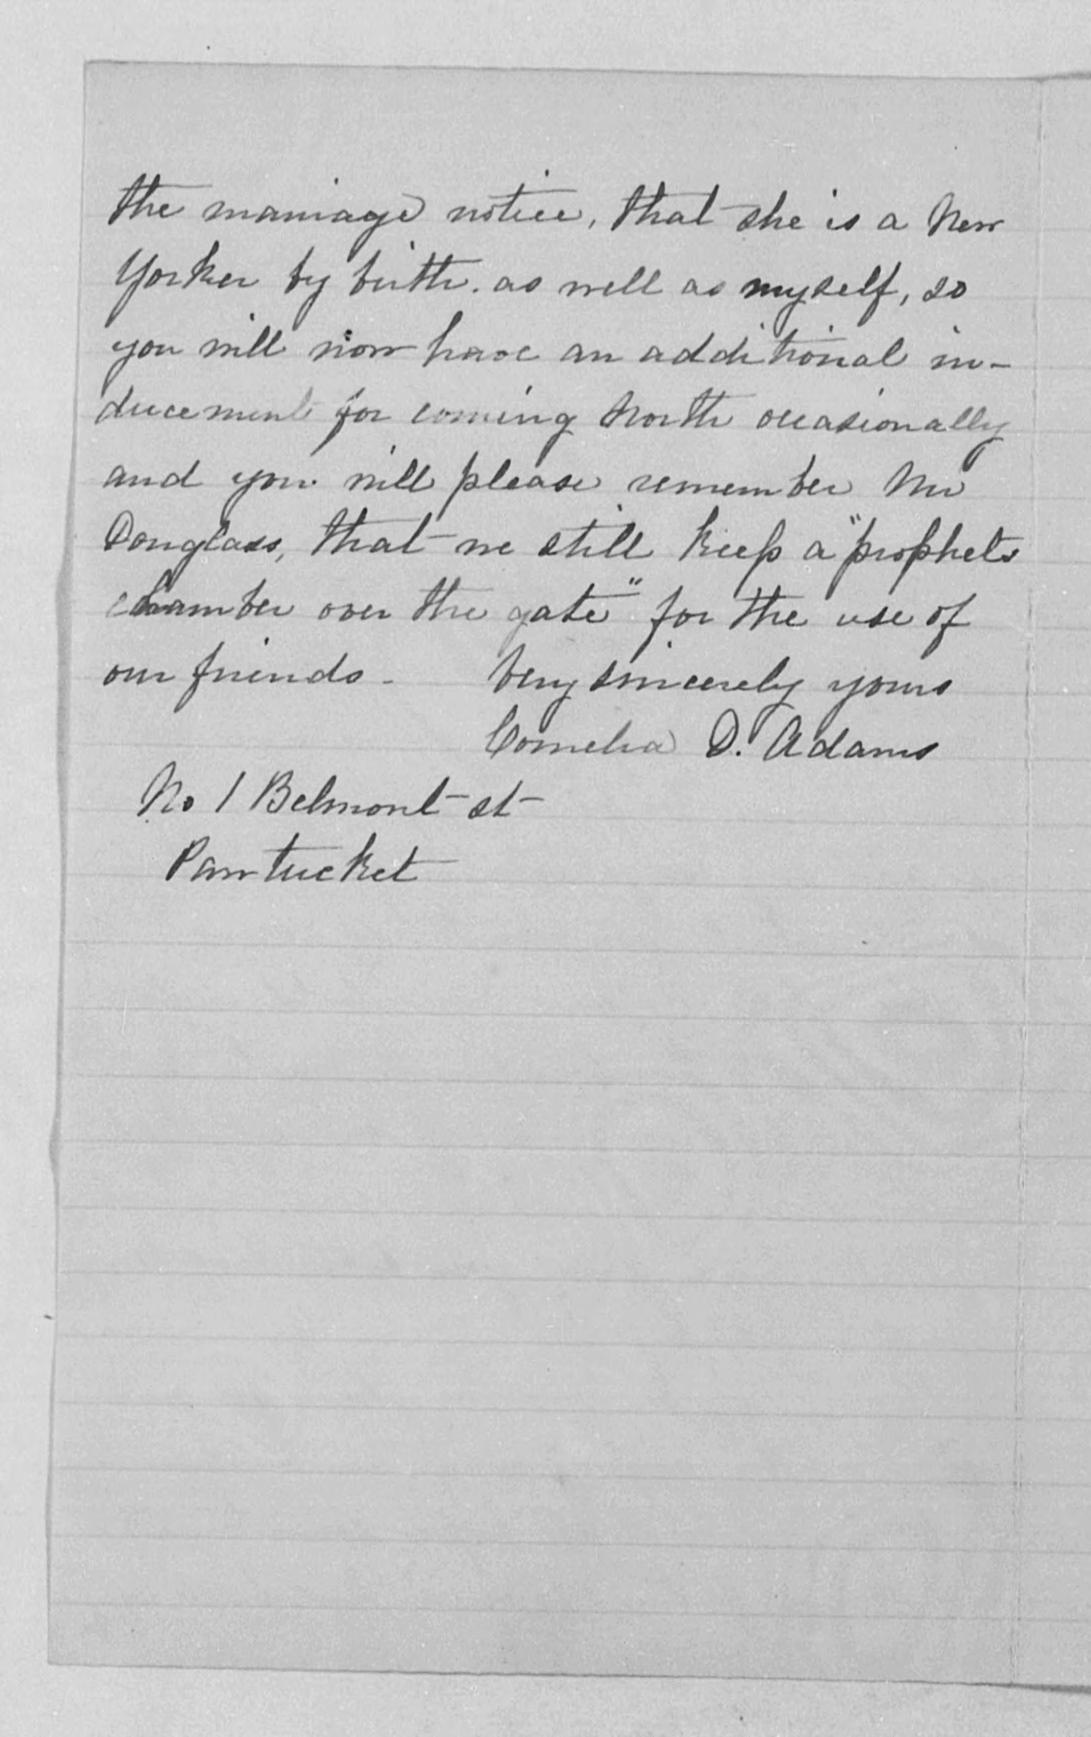 the marriage notice, that she is a New
Yorker by birth. as well as myself, so
you will now have an additional in-
ducement for coming North occasionally
and you will please remember Mr
Douglass, that we still keep a "prophets
chamber over the gate" for the use of
our friends - Very sincerely yours
Cornelia D. Adams
No 1 Belmont st
Pawtucket